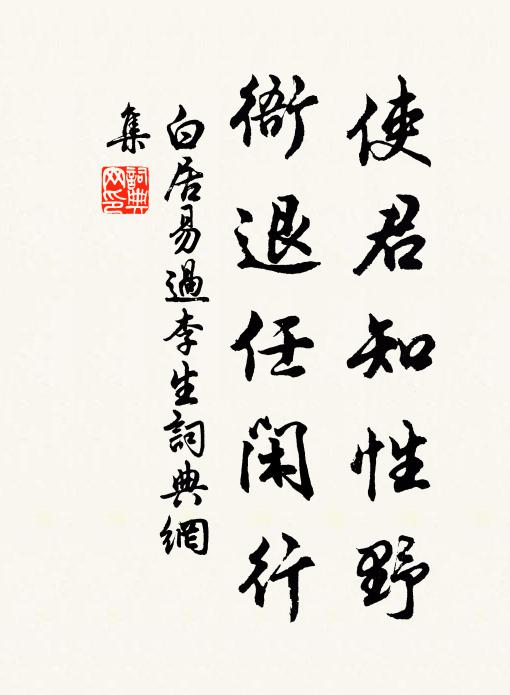 使君知性野
衙退任閑行
白居易過李生詞典網
集
詞典
网印